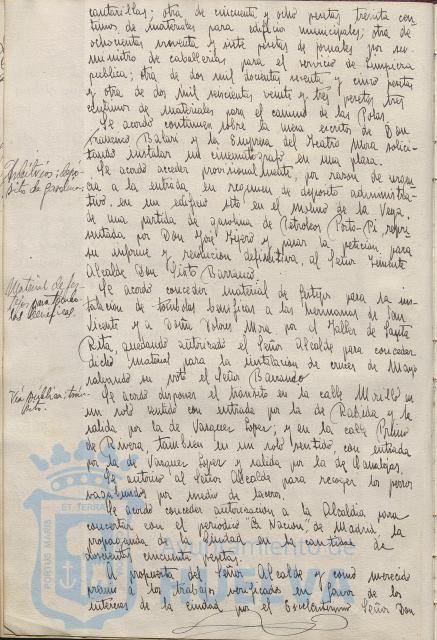 cantarillas; otra de cincuenta y ocho pesetas treinta cén-
timos de materiales para edificios municipales; otra de
ochocientas noventa y siete pesetas de jornales por su-
ministro de caballerías para el servicio de limpieza
pública; otra de dos mil doscientas noventa y cinco pesetas
y otra de dos mil seiscientas veinte y tres pesetas tres
céntimos de materiales para el camino de las Colas.
Se acordó continuen sobre la mesa escritos de Don
Francisco Balari y la Empresa del Teatro Mora solici-
tando instalar un cinematógrafo en una plaza.
Arbitrios; depó-
sito de gasolina.
Se acordó acceder provisionalmente, por razón de urgen-
cia a la entrada, en regimen de depósito administra-
tivo, en un edificio sito en el molino de la Vega,
de una partida de gasolina de Petróleos Porto-Pi repre-
sentada por Don José y pasar la petición para
su informe y resolución definitiva, al Señor Teniente
Alcalde Don Sixto Barranco.
Material de fes-
tejos para tómbo-
las benéficas.
Se acordó conceder material de festejos para la ins-
talación de tómbolas benéficas a las hermanas de San
Vicente y a Doña Dolores Mora por el Taller de Santa
Rita, quedando autorizado el Señor Alcalde para conceder
dicho material para la instalación de cruces de Mayo
salvando su voto el Señor Barranco.
Vía pública; trán-
sito.
Se acordó disponer el tránsito en la calle Murillo en
un solo sentido con entrada por la de Rábida y sa-
lida por la de Vázquez López; y en la calle Primo
de Rivera, también en un solo sentido, con entrada
por la de Vázquez López y salida por la de Canalejas.
Se autorizó al Señor Alcalde para recoger los perros
vagabundos por medio de laceros.
Se acordó conceder autorización a la Alcaldía para
concertar con el periódico "La Nación", de Madrid, la
propaganda de la ciudad, en la cantidad de
doscientas cincuenta pesetas.
A propuesta del Señor Alcalde y como merecido
premio a los trabajos verificados en favor de los
intereses de la ciudad por el Excelentísimo Señor Don
PORTUS MARIS
ET TERRAE
Ayuntamiento de
HUELVA